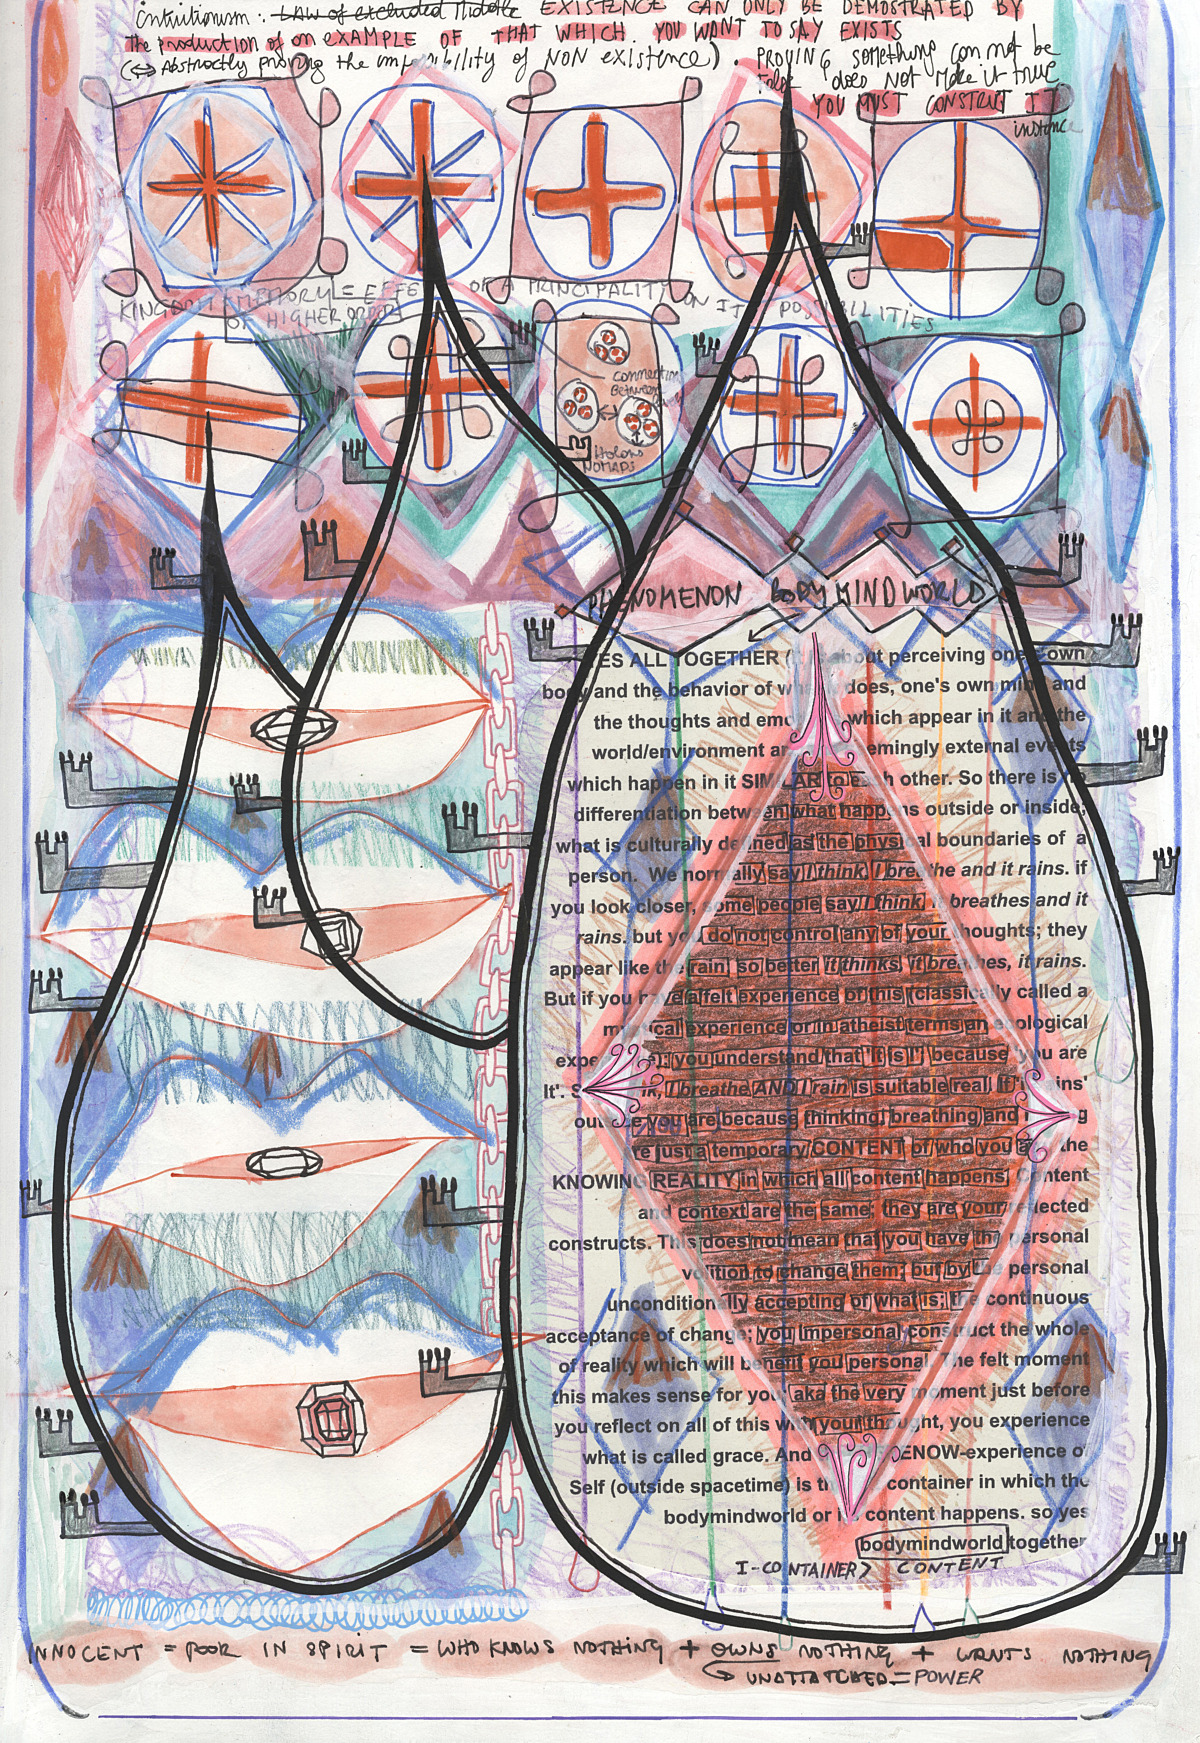 intuitionism : LAW of excluded Middle EXISTENCE CAN ONLY BE DEMOSTRATED BY
The production of an EXAMPLE OF THAT WHICH YOU WANT TO SAY EXISTS
(⇔ Abstractly proving the impossibility of NON existence). PROVING something can not be
false does NOT Make it true
YOU MUST CONSTRUCT IT
instance
KINGDOM MEMORY = EFFECT OF A PRINCIPALITY ON ITS POSSIBILITIES
OF HIGHER ORDER
connection
Between
Holons
NOMADS
PHENOMENON BODY MIND WORLD
YES ALL TOGETHER ( about perceiving one's own
body and the behavior of what does, one's own mind and
the thoughts and emo which appear in it and the
world/environment an emingly external events
which happen in it SIMILAR to each other. So there is no
differentiation between what happens outside or inside,
what is culturally defined as the physical boundaries of a
person. We normally say I think, I breathe and it rains. If
you look closer, some people say I think, it breathes and it
rains. but you do not control any of your thoughts; they
appear like the rain, so better it thinks, it breathes, it rains.
But if you have a felt experience of this (classically called a
mystical experience or in atheist terms an ecological
expe ): you understand that 'It is I' because 'you are
It'. S nk, I breathe AND I rain is suitable real. If 'it ins'
outside you are because thinking, breathing and g
re just a temporary CONTENT of who you are the
KNOWING REALITY in which all content happens. Content
and context are the same: they are your reflected
constructs. This does not mean that you have the personal
volition to change them; but by the personal
unconditionally accepting of what is; the continuous
acceptance of change; you impersonal construct the whole
of reality which will benefit you personal. The felt moment
this makes sense for you, aka the very moment just before
you reflect on all of this with your thought, you experience
what is called grace. And ENOW-experience of
Self (outside spacetime) is th container in which the
bodymindworld or its content happens. so yes
bodymindworld together
I-CONTAINER> CONTENT
INNOCENT = POOR IN SPIRIT = WHO KNOWS NOTHING + OWNS NOTHING + WANTS NOTHING
↪ UNATTATCHED = POWER